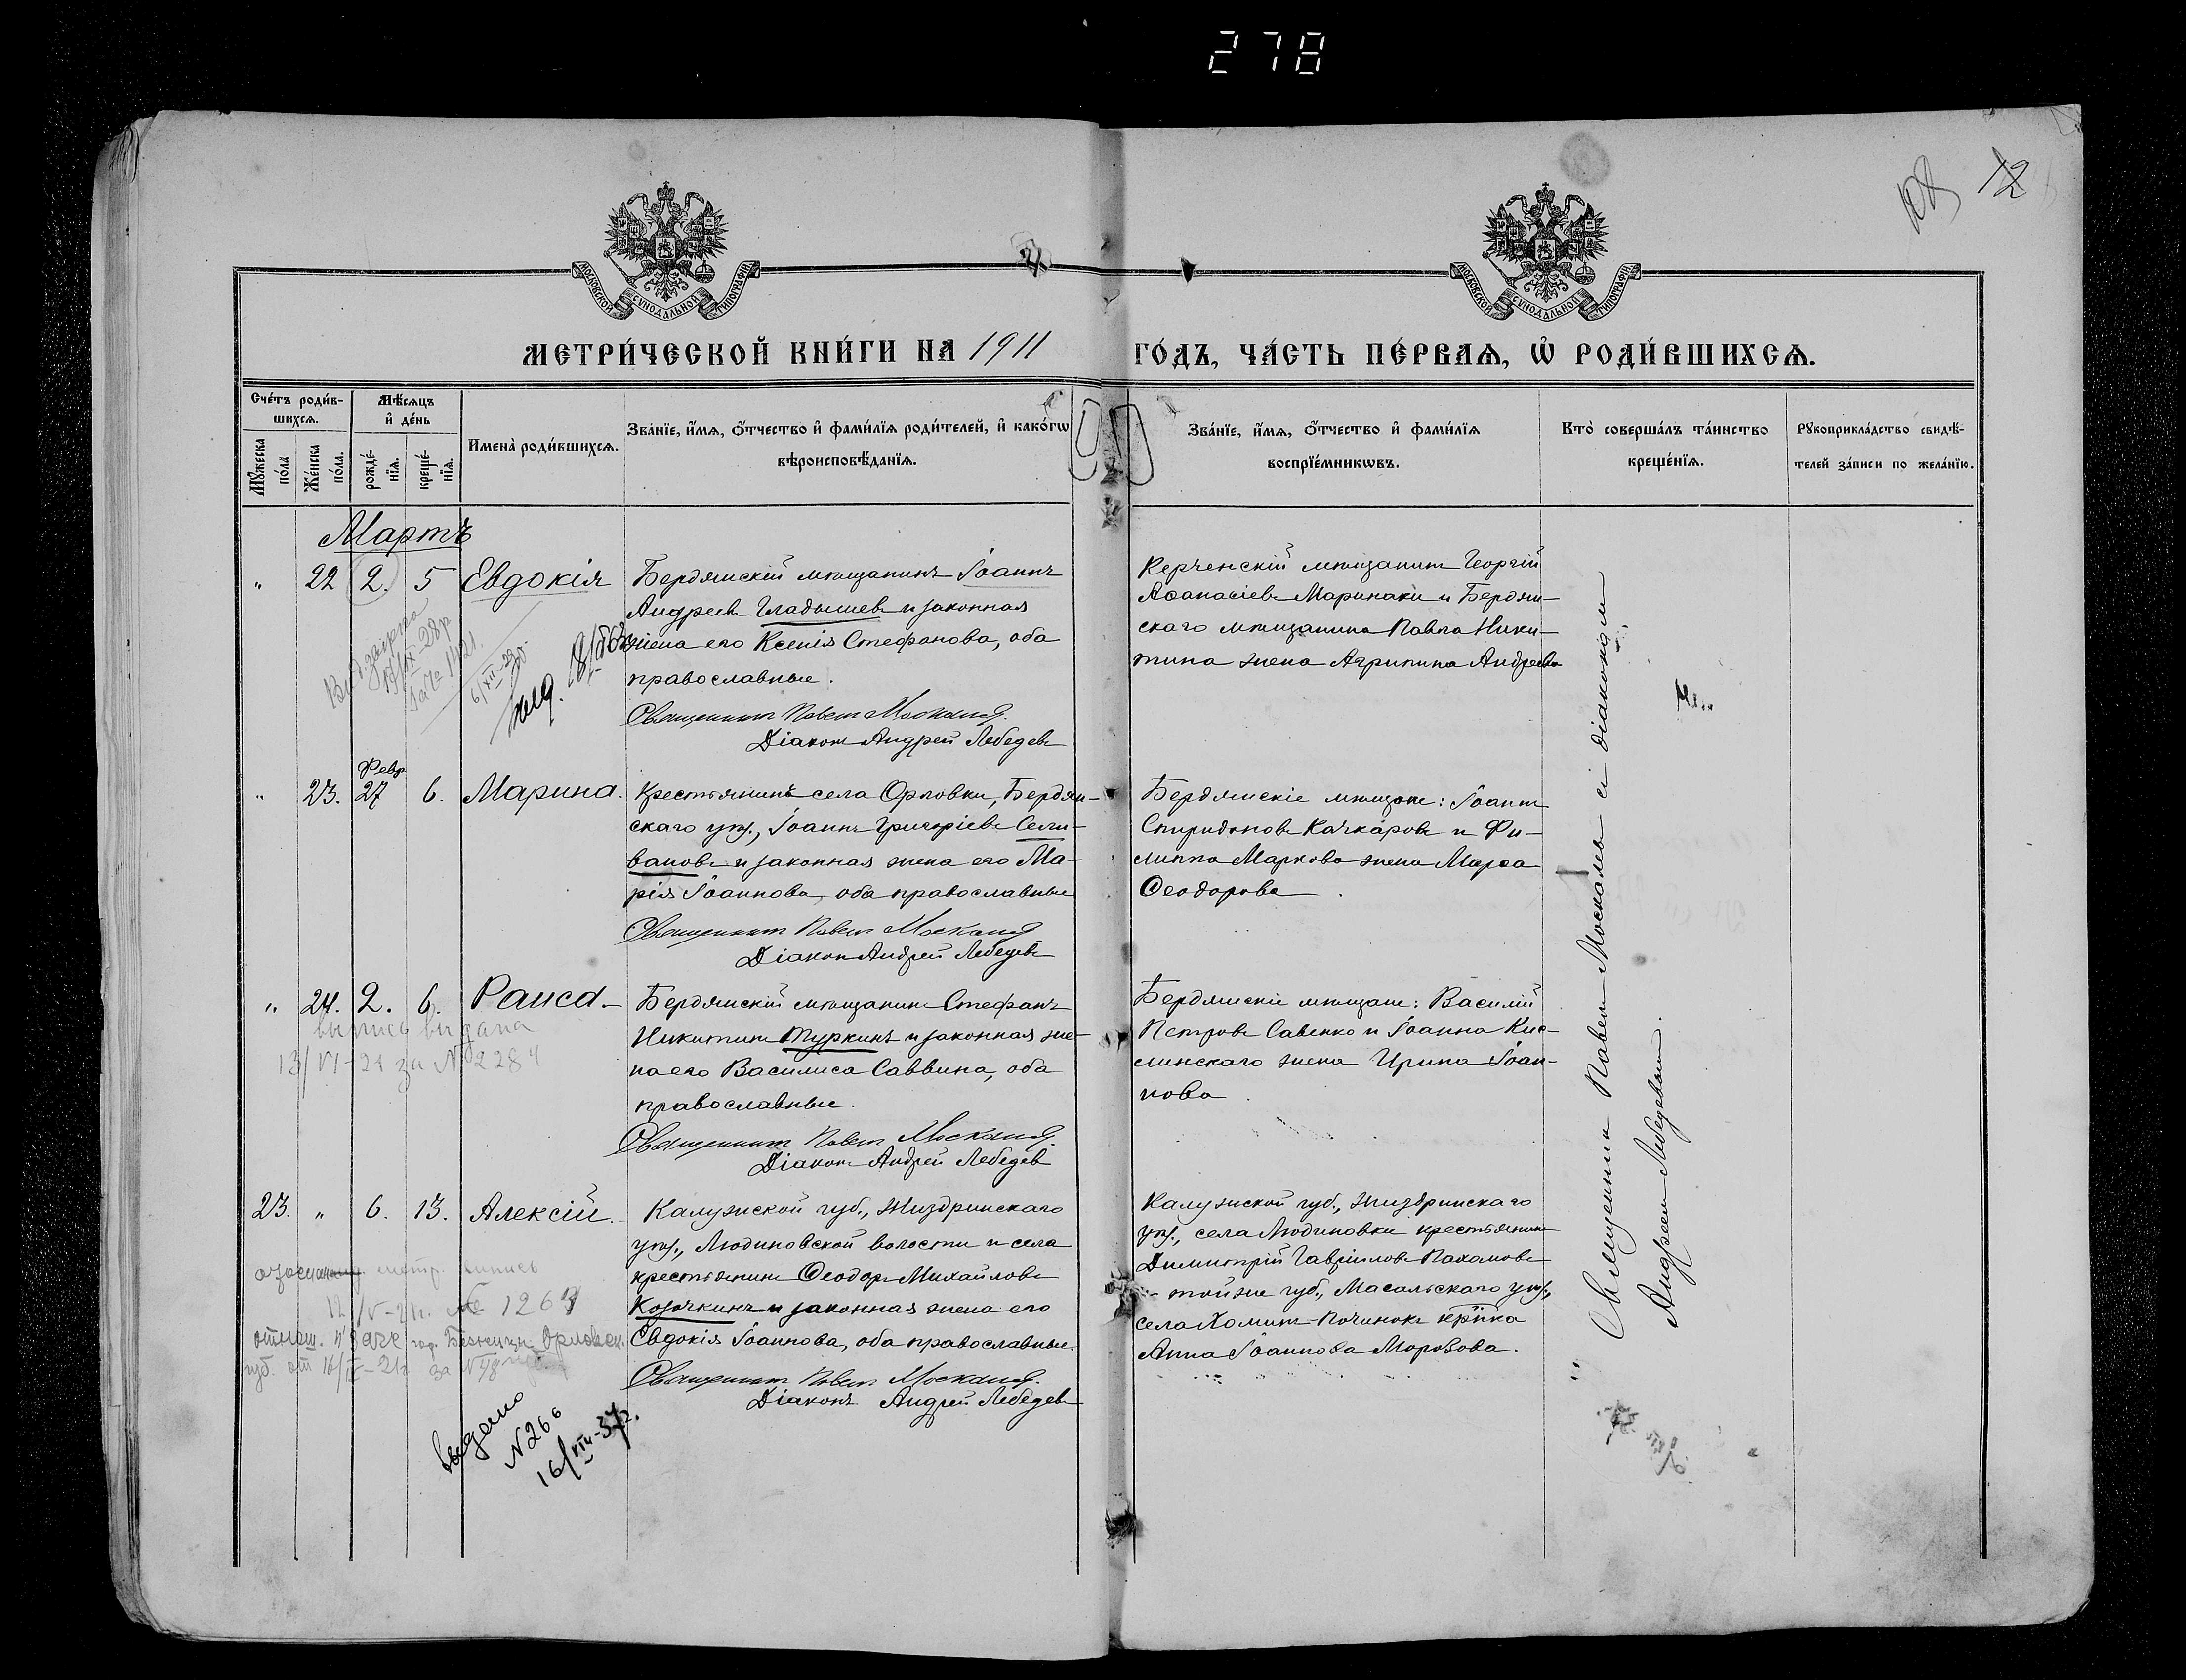 278
12
МОСКОВСКОЙ СѴНОДАЛЬНОЙ ТИПОГРАФІИ
МОСКОВСКОЙ СѴНОДАЛЬНОЙ ТИПОГРАФІИ
МЕТРИ́ЧЕСКОЙ КНИ́ГИ НА 1911
ГО́ДЪ, ЧА́СТЬ ПЕ́РВАѦ, Ѽ РОДИ́ВШИХСѦ.
Сче́тъ роди́в-
шихсѧ.
Мꙋ́жеска
по́ла
Же́нска
по́ла.
Мѣ́сѧцъ
и҆ де́нь
рожде́-
нїѧ.
креще́-
нїѧ.
Имена̀ роди́вшихсѧ.
Зва́нїе, и҆́мѧ, ѻ҆́тчество и҆ фами́лїѧ роди́телей, и҆ како́гѡ
вѣроисповѣ́данїѧ.
Зва́нїе, и҆́мѧ, ѻ҆́тчество и҆ фами́лїѧ
воспрїе́мникѡвъ.
Кто̀ соверша́лъ та́инство
креще́нїѧ.
Рꙋкоприкла́дство свидѣ́-
телей за́писи по жела́нїю.
Мартъ
" 22 2. 5 Евдокія
Бердянскій мѣщанинъ Іоаннъ
Андреевъ Гладышевъ и законная
жена его Ксенія Стефанова, оба
православные.
Священникъ Павелъ Москаль
Діаконъ Андрей Лебедевъ
Керченскій мѣщанинъ Георгій
Аѳанасіевъ Маринаки и Бердян-
скаго мѣщанина Павла Ники-
тина жена Агрипина Андреева
6/XII-29г.
Февр.
" 23. 27 6. Марина.
Крестьянинъ села Орловки, Бердян-
скаго уѣз., Іоаннъ Григоріевъ Сели-
вановъ и законная жена его Ма-
рія Іоаннова, оба православные
Священникъ Павелъ Москаль
Діаконъ Андрей Лебедевъ
Бердянскіе мѣщане: Іоаннъ
Спиридоновъ Качкаровъ и Фи-
липпа Маркова жена Марѳа
Ѳеодорова
" 24. 2. 6. Раиса
выпись выдана
13/VI-24 за № 2284
Бердянскій мѣщанинъ Стефанъ
Никитинъ Туркинъ и законная же-
на его Василиса Саввина, оба
православные.
Священникъ Павелъ Москаль
Діаконъ Андрей Лебедевъ
Бердянскіе мѣщане: Василій
Петровъ Савенко и Іоанна Кис-
линскаго жена Ирина Іоан-
нова
23. " 6. 13. Алексій.
Калужской губ., Жиздринскаго
уѣз., Людиновской волости и села
крестьянинъ Ѳеодоръ Михайловъ
Козочкинъ и законная жена его
Евдокія Іоаннова, оба православные.
Священникъ Павелъ Москаль
Діаконъ Андрей Лебедевъ
Калужской губ., Жиздринскаго
уѣз., села Людиновки крестьянинъ
Димитрій Гавріиловъ Пахомовъ
- той же губ., Масальскаго уѣз.,
села Хомитъ-Починокъ кр҃нка
Анна Іоаннова Морозова.
метр. выпись
12/V-21г. № 1264
выдано
№ 266
16/VIII-37г.
Священникъ Павелъ Москаль съ діакономъ
Андреемъ Лебедевымъ.